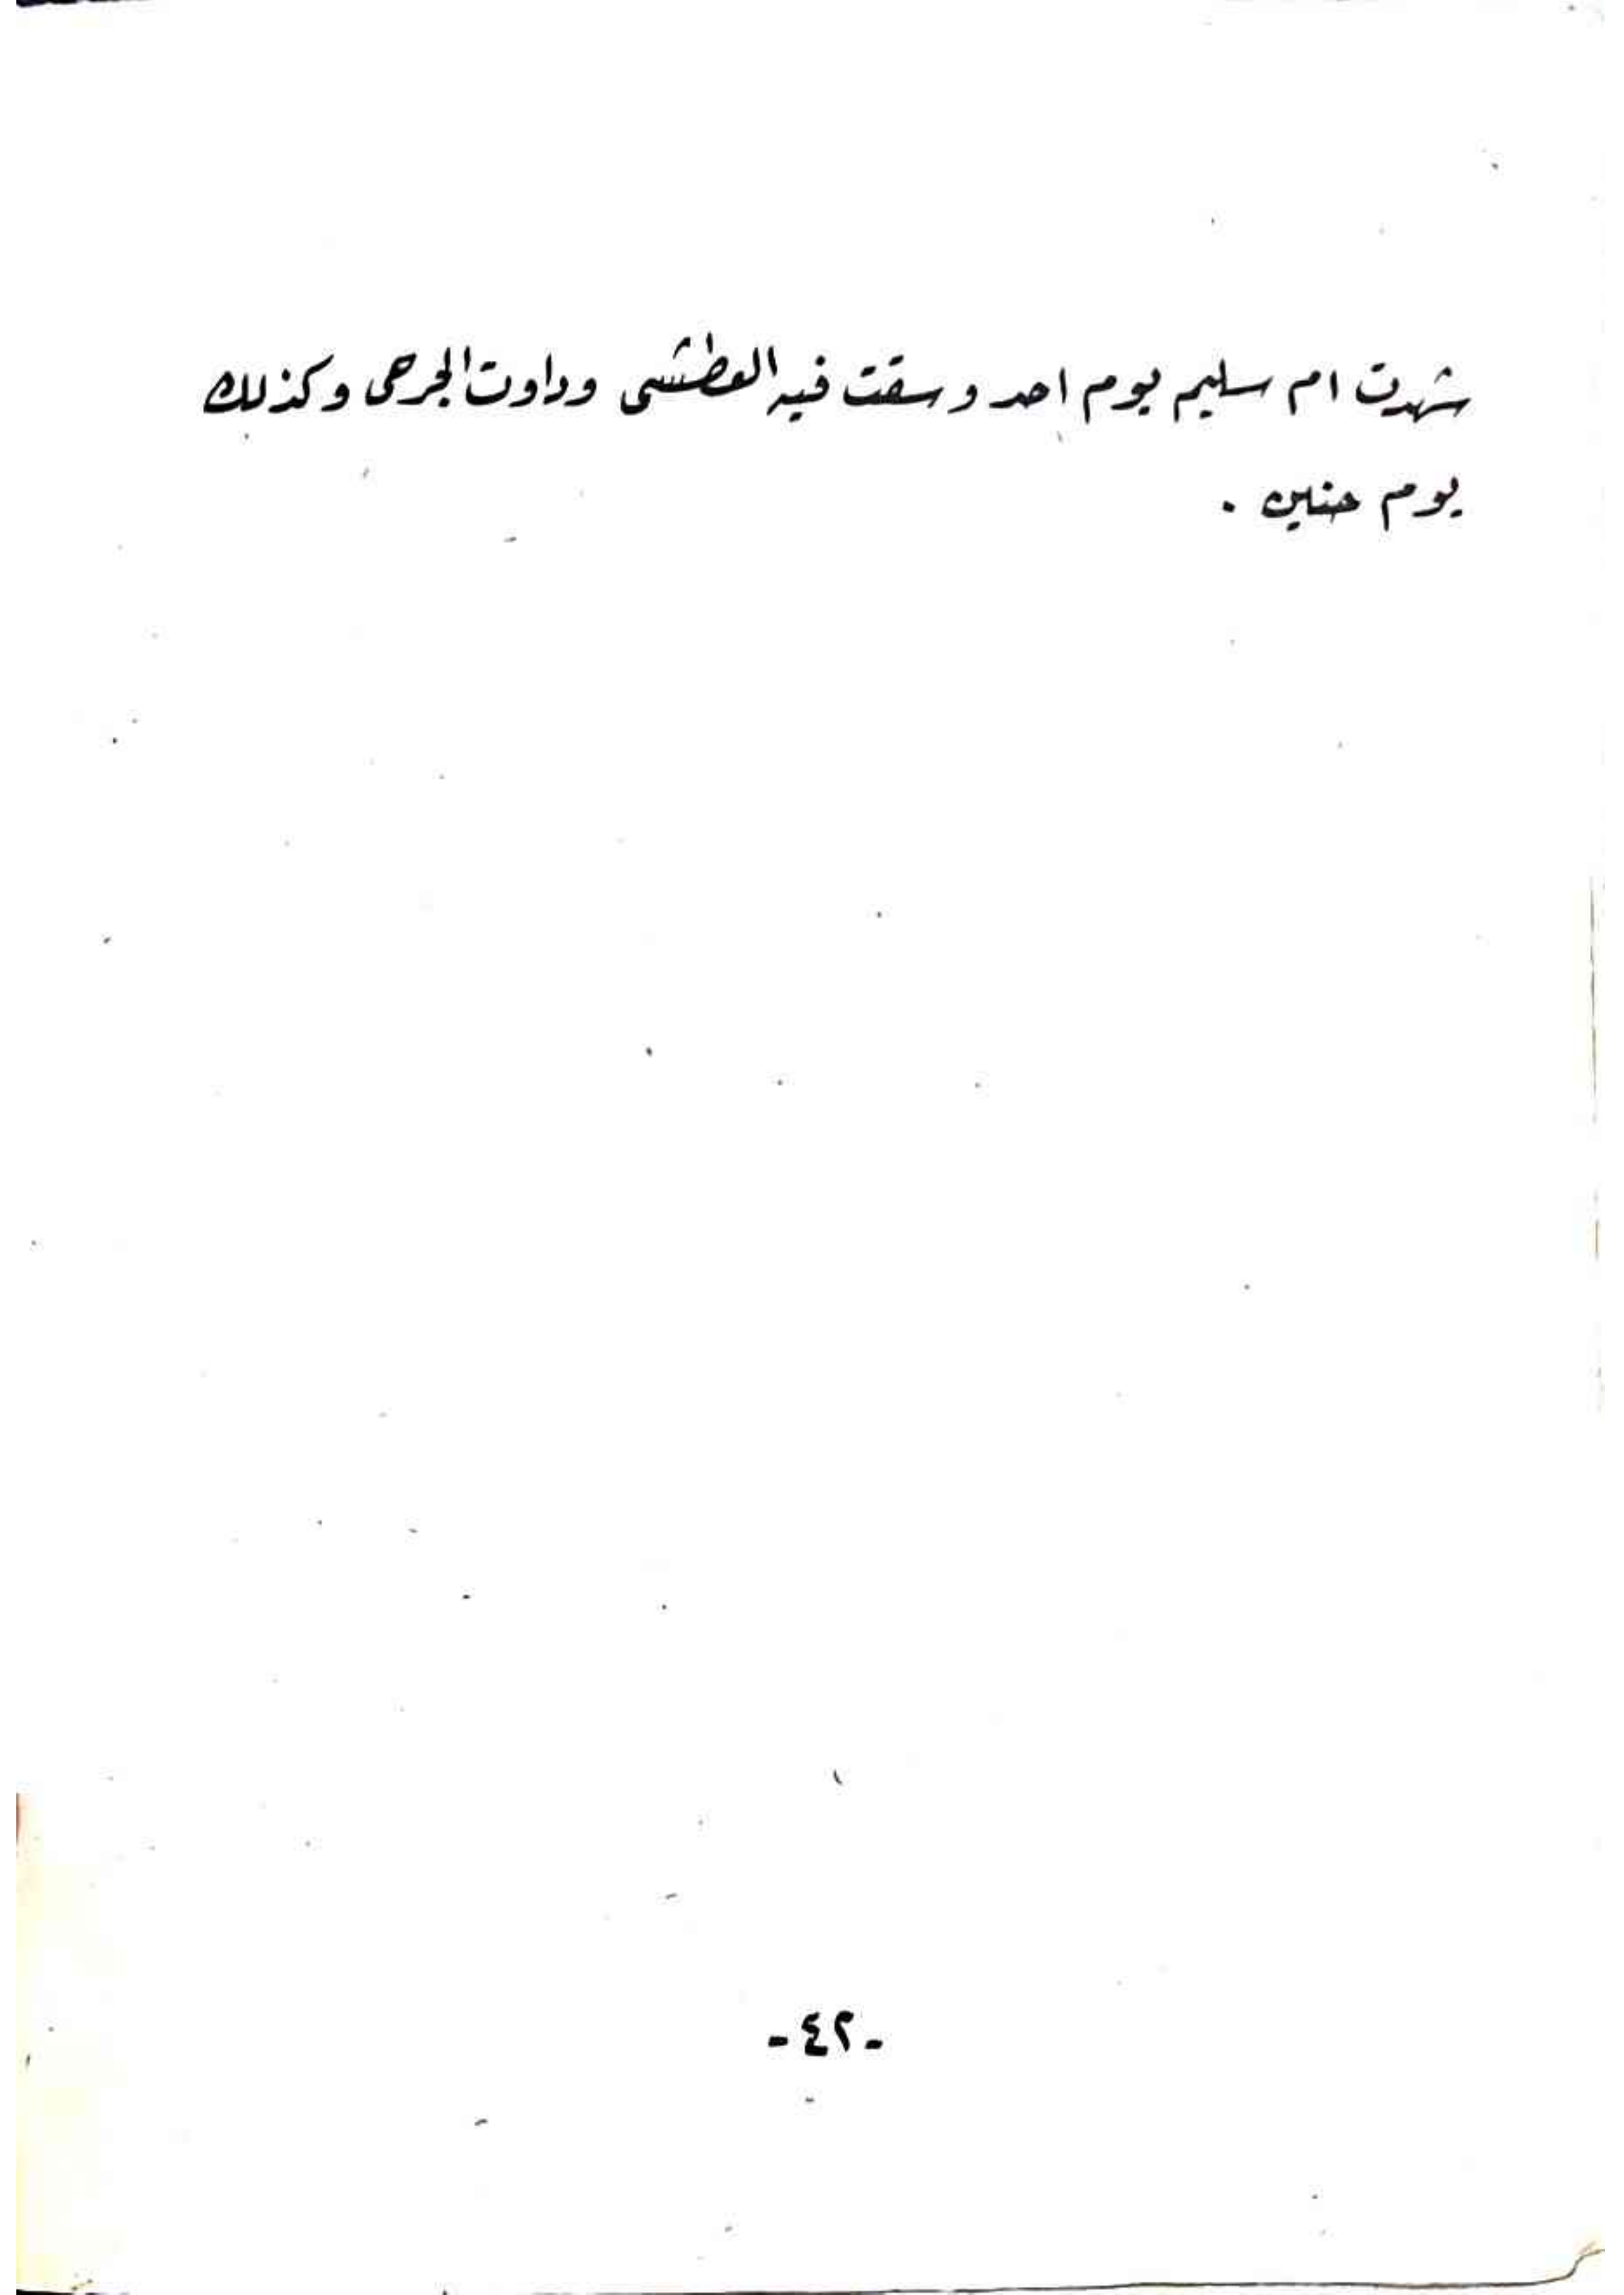 شهدت ام سليم يوم احد وسقت فيه العطشى وداوت الجرحى وكذلك
يوم حنين .
-٤٢-